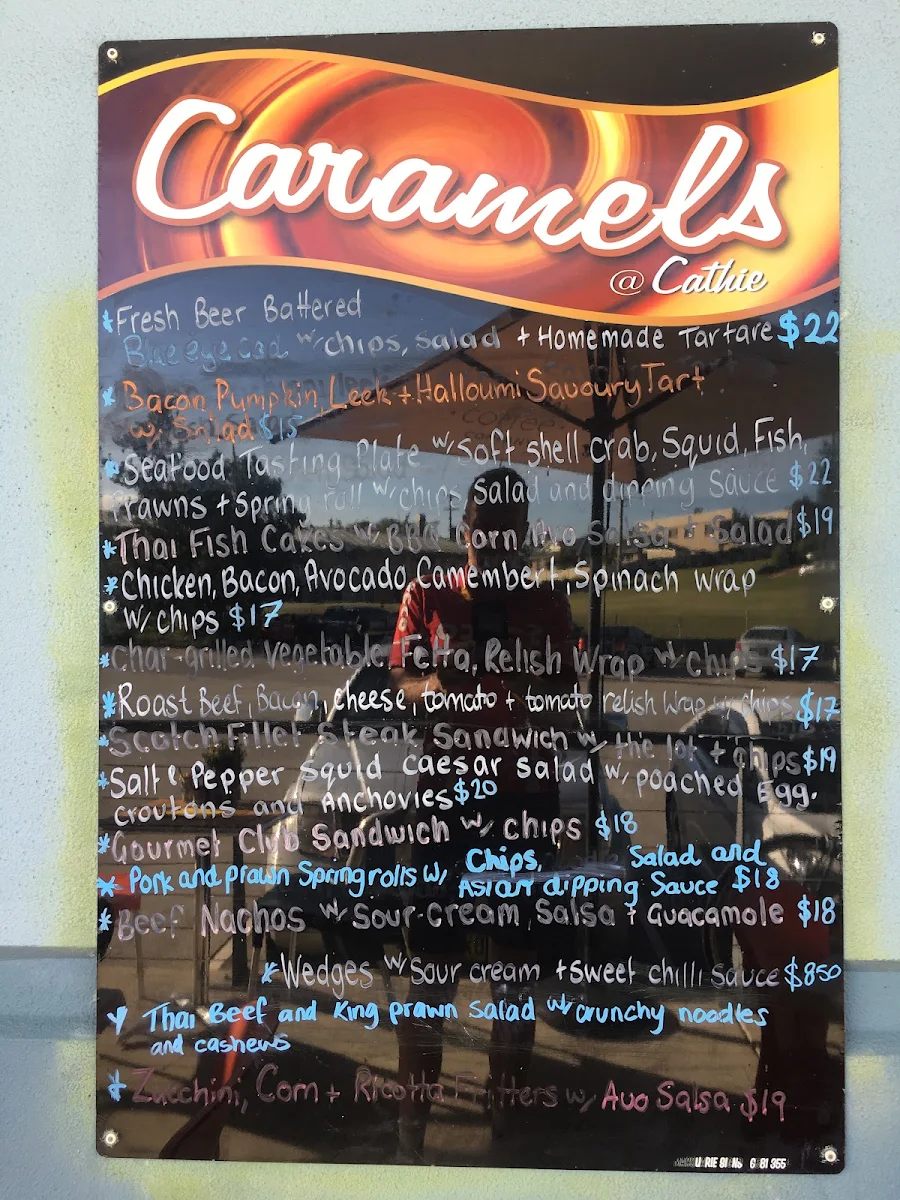 Caramels
@ Cathie
*Fresh Beer Battered
Blue eye cod w/ chips, Salad + Homemade Tartare $22
* Bacon, Pumpkin, Leek + Halloumi Savoury Tart
w/ Salad $15
* Seafood Tasting Plate w/ Soft shell crab, Squid, Fish,
Prawns + Spring roll w/ chips Salad and dipping Sauce $22
*Thai Fish Cakes w/ BBQ Corn, Avo Salsa + Salad $19
*Chicken, Bacon, Avocado, Camembert, Spinach wrap
w/ chips $17
*Char-grilled Vegetable, Fetta, Relish Wrap w/ Chips $17
*Roast Beef, Bacon, cheese, tomato + tomato relish Wrap w/ chips $17
*Scotch Fillet Steak Sandwich w/ the lot + chips $19
*Salt & Pepper Squid Caesar Salad w/ poached Egg,
croutons and Anchovies $20
*Gourmet Club Sandwich w/ chips $18
* Pork and prawn Spring rolls w/ Chips, Salad and
Asian dipping Sauce $18
*Beef Nachos w/ Sour-cream, Salsa + Guacamole $18
*Wedges w/ Sour cream + Sweet chilli Sauce $850
* Thai Beef and King prawn Salad w/ crunchy noodles
and cashews
* Zucchini, Corn + Ricotta Fritters w/ Avo Salsa $19